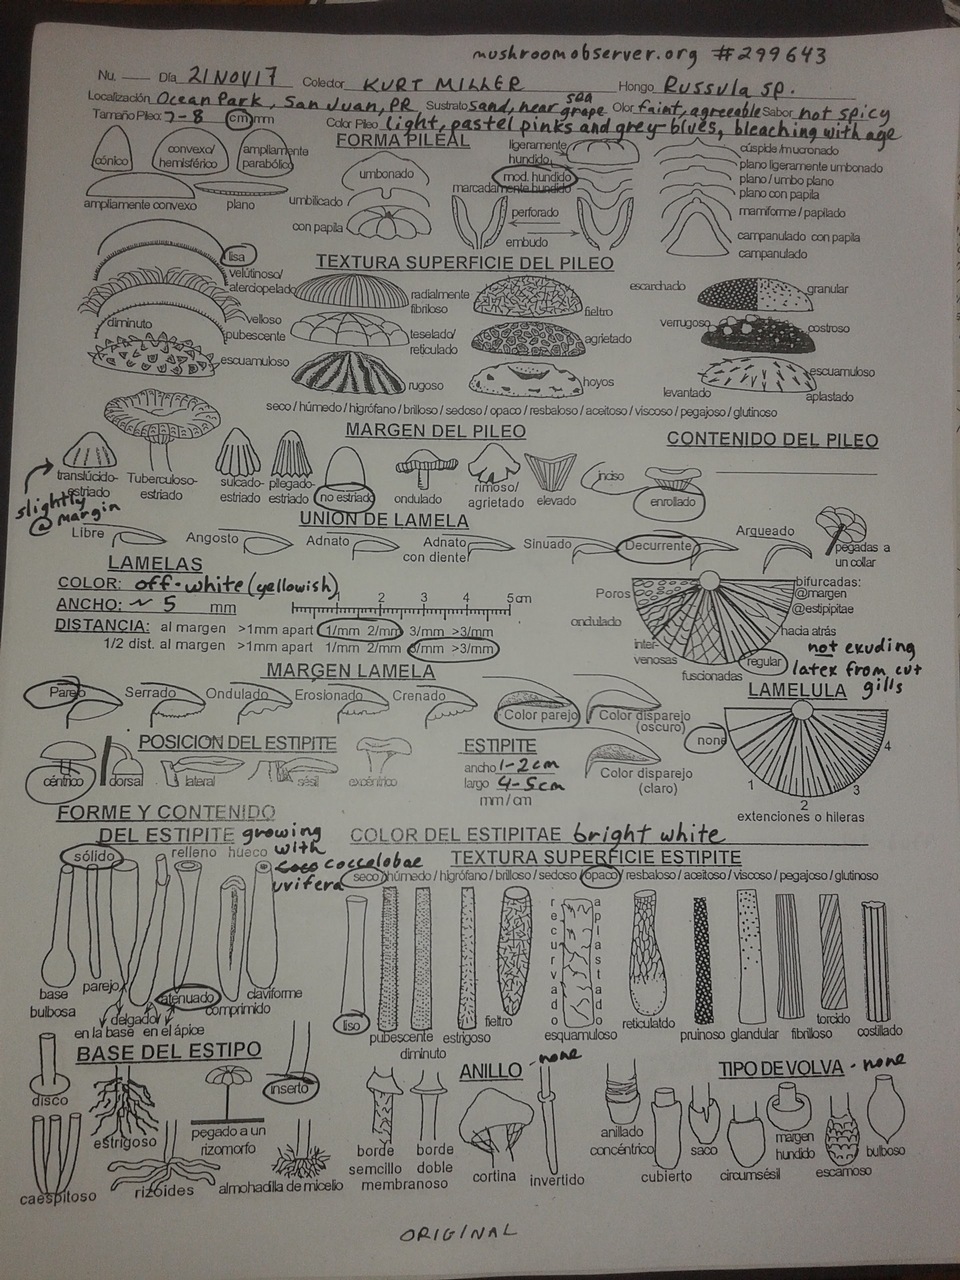 mushroomobserver.org #299643
Nu. Día 21NOV17 Colector KURT MILLER Hongo Russula sp.
Localización Ocean Park, San Juan, PR Sustrato sand, near sea grape Olor faint, agreeable Sabor not spicy
Tamaño Pileo: 7-8 cm mm Color Pileo light, pastel pinks and grey-blues, bleaching with age
FORMA PILEAL
cónico
convexo/ hemisférico
ampliamente parabólic
ampliamente convexo
plano
umbonado
umbilicado
con papila
ligeramente hundido
mod. hundido
marcadamente hundido
perforado
embudo
cúspide/mucronado
plano ligeramente umbonado
plano / umbo plano
plano con papila
mamiforme / papilado
campanulado con papila
campanulado
TEXTURA SUPERFICIE DEL PILEO
lisa
velútinoso/ aterciopelado
velloso
diminuto
pubescente
escuamuloso
radialmente fibriloso
teselado/ reticulado
rugoso
fieltro
agrietado
hoyos
escarchado
granular
verrugoso
costroso
escuamuloso
levantado
aplastado
seco / húmedo / higrófano / brilloso / sedoso / opaco / resbaloso / aceitoso / viscoso / pegajoso / glutinoso
MARGEN DEL PILEO
CONTENIDO DEL PILEO
translúcido-estriado
slightly @ margin
Tuberculoso-estriado
sulcado-estriado
pllegado-estriado
no estriado
ondulado
rimoso/ agrietado
elevado
inciso
enrollado
UNION DE LAMELA
Libre
Angosto
Adnato
Adnato con diente
Sinuado
Decurrente
Arqueado
pegadas a un collar
LAMELAS
COLOR: off-white (yellowish)
ANCHO: ~ 5 mm
1 2 3 4 5cm
DISTANCIA: al margen >1mm apart 1/mm 2/mm 3/mm >3/mm
1/2 dist. al margen >1mm apart 1/mm 2/mm 3/mm >3/mm
Poros
ondulado
inter-venosas
fuscionadas
regular
bifurcadas:
@margen
@estipipitae
hacia atrás
not exuding latex from cut gills
MARGEN LAMELA
LAMELULA
Parejo
Serrado
Ondulado
Erosionado
Crenado
Color parejo
Color disparejo (oscuro)
none
1 2 3 4
extenciones o hileras
POSICION DEL ESTIPITE
céntrico
dorsal
lateral
sésil
excéntrico
ESTIPITE
ancho 1-2cm
largo 4-5cm
mm/cm
Color disparejo (claro)
FORME Y CONTENIDO
DEL ESTIPITE growing with coccolobae uvifera
COLOR DEL ESTIPITAE bright white
sólido
relleno
hueco
TEXTURA SUPERFICIE ESTIPITE
seco / húmedo / higrófano / brilloso / sedoso / opaco / resbaloso / aceitoso / viscoso / pegajoso / glutinoso
base bulbosa
parejo
delgado
en la base
en el ápice
atenuado
comprimido
claviforme
liso
pubescente diminuto
estrigoso
fieltro
recurvado
aplastado
esquamuloso
reticulatdo
pruinoso
glandular
fibrilloso
torcido
costillado
BASE DEL ESTIPO
disco
estrigoso
pegado a un rizomorfo
inserto
caespitoso
rizoides
almohadilla de micelio
ANILLO - none
borde semcillo
borde doble
membranoso
cortina
invertido
TIPO DE VOLVA - none
anillado concéntrico
cubierto
saco
circumsésil
margen hundido
escamoso
bulboso
ORIGINAL